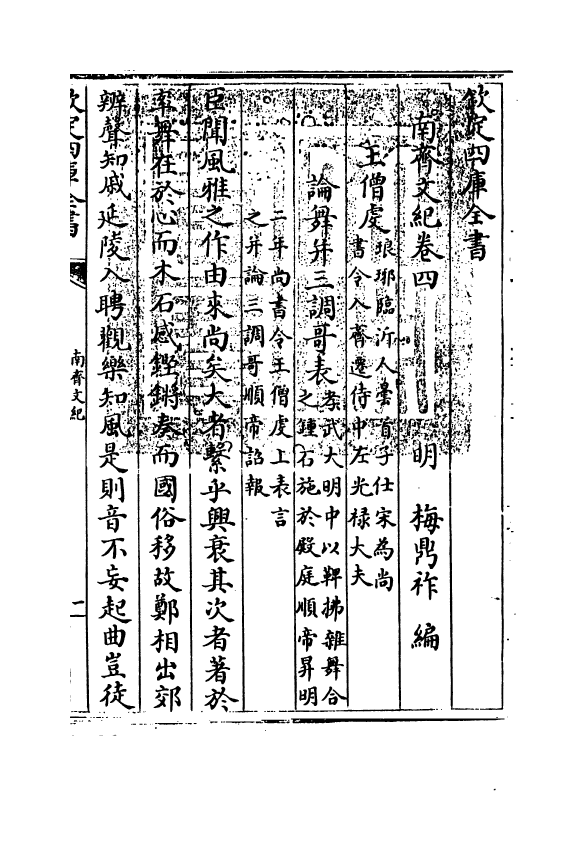 欽定四庫全書
南齊文紀卷四
明 梅鼎祚 編
王僧虔
琅琊臨沂人曇首子仕宋為尚
書令入齊遷侍中左光祿大夫
論舞并三調哥表
孝武大明中以鞞拂雜舞合
之鍾石施於殿庭順帝昇明
二年尚書令王僧虔上表言
之并論三調哥順帝詔報
臣聞風雅之作由來尚矣大者繫乎興衰其次者著於
率舞在於心而木石感鏗鏘奏而國俗移故鄭相出郊
辨聲知戚延陵入聘觀樂知風是則音不妄起曲豈徒
欽定四庫全書
南齊文紀